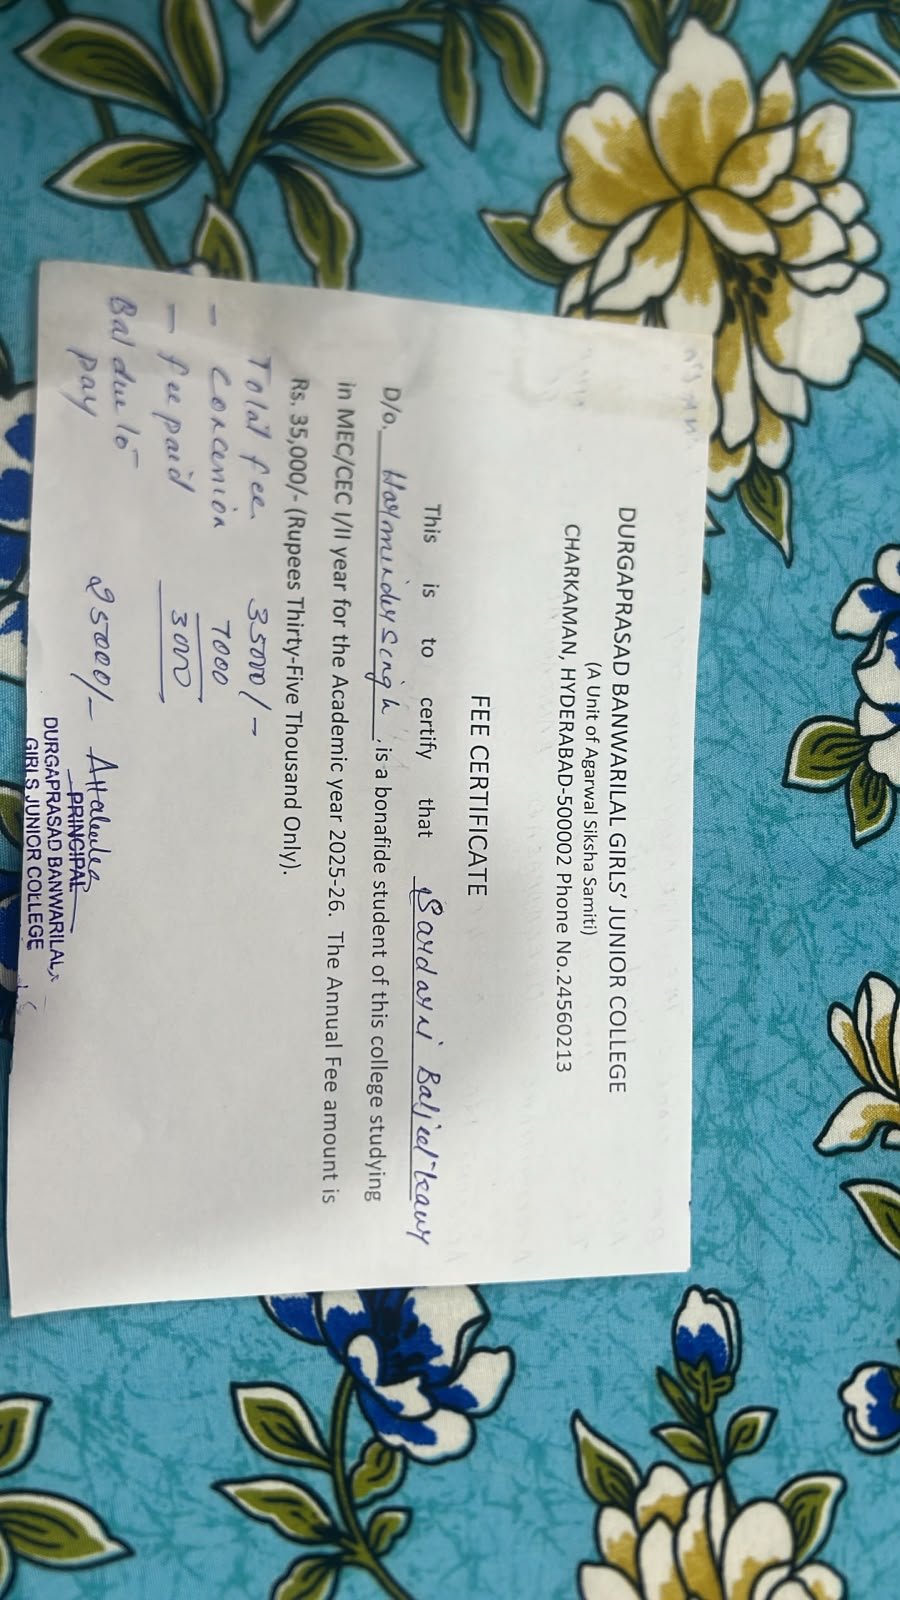 DURGAPRASAD BANWARILAL GIRLS' JUNIOR COLLEGE
(A Unit of Agarwal Siksha Samiti)
CHARKAMAN, HYDERABAD-500002 Phone No.24560213
FEE CERTIFICATE
This is to certify that Sardarni Baljeet kaur
D/o. Harminder Singh is a bonafide student of this college studying
in MEC/CEC I/II year for the Academic year 2025-26. The Annual Fee amount is
Rs. 35,000/- (Rupees Thirty-Five Thousand Only).
Total fee 35000/-
- Concession 7000
- fee paid 3000
Bal due to pay 25000/-
PRINCIPAL
DURGAPRASAD BANWARILAL
GIRLS JUNIOR COLLEGE